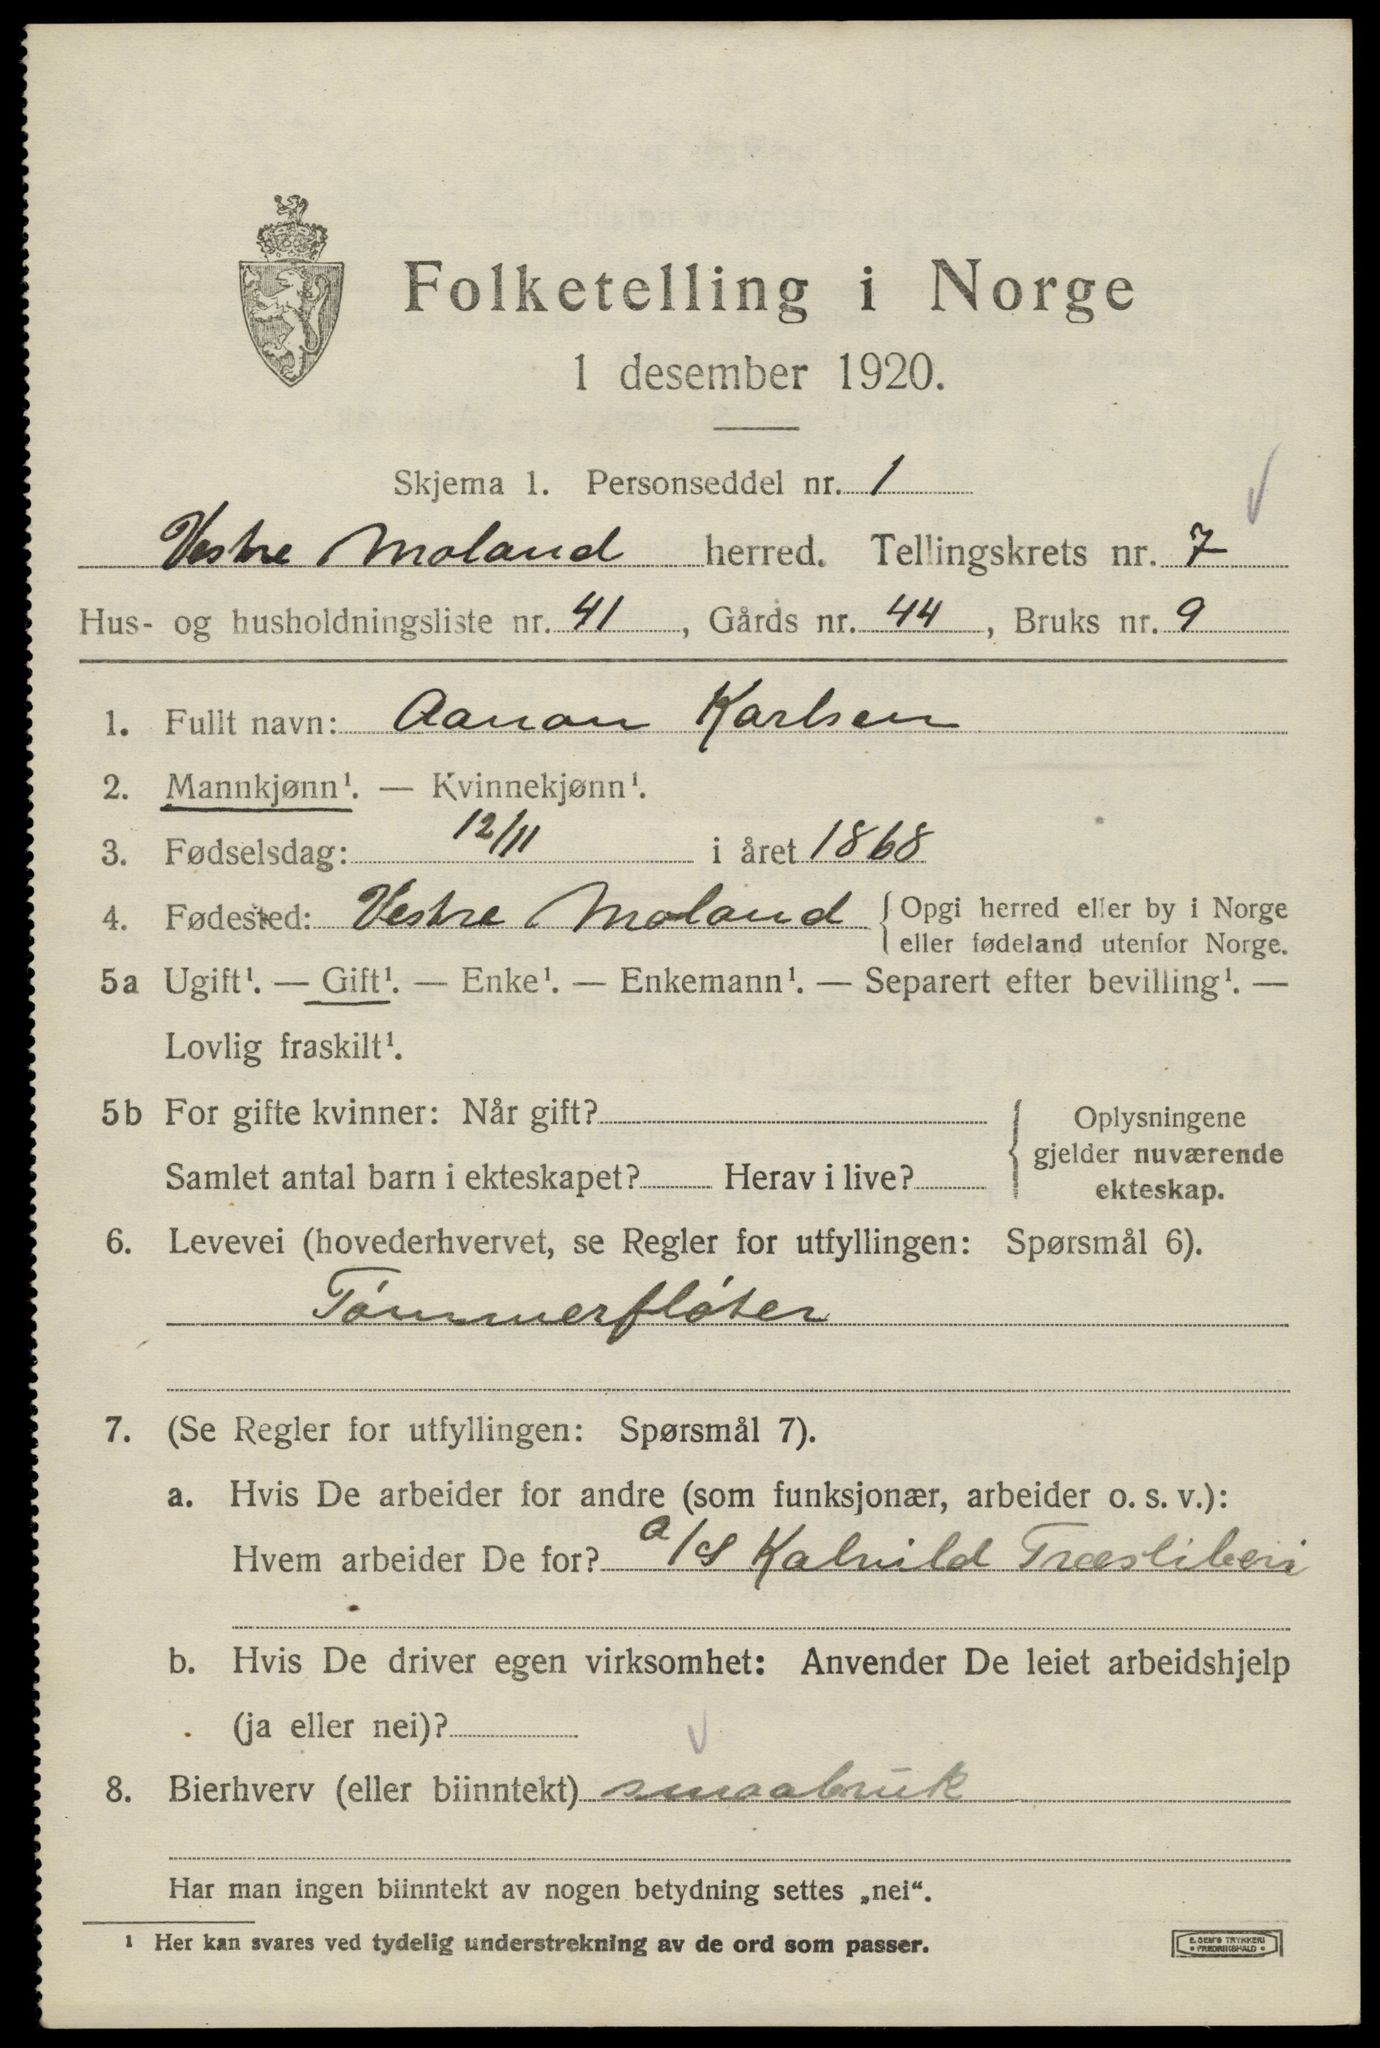 Folketelling i Norge
1 desember 1920.
Skjema 1. Personseddel nr. 1
Vestre Moland herred. Tellingskrets nr. 7
Hus- og husholdningsliste nr. 41, Gårds nr. 44, Bruks nr. 9
1. Fullt navn: Aanon Karlsen
2. Mannkjønn¹. — Kvinnekjønn¹.
3. Fødselsdag: 12/11 i året 1868
4. Fødested: Vestre Moland { Opgi herred eller by i Norge
eller fødeland utenfor Norge.
5a Ugift¹. — Gift¹. — Enke¹. — Enkemann¹. — Separert efter bevilling¹. —
Lovlig fraskilt¹.
5b For gifte kvinner: Når gift?
Samlet antal barn i ekteskapet? Herav i live?
{ Oplysningene
gjelder nuværende
ekteskap.
6. Levevei (hovederhvervet, se Regler for utfyllingen: Spørsmål 6).
Tømmerfløter
7. (Se Regler for utfyllingen: Spørsmål 7).
a. Hvis De arbeider for andre (som funksjonær, arbeider o. s. v.):
Hvem arbeider De for? a/s Kalvild Træsliberi
b. Hvis De driver egen virksomhet: Anvender De leiet arbeidshjelp
(ja eller nei)?
8. Bierhverv (eller biinntekt) smaabruk
Har man ingen biinntekt av nogen betydning settes „nei“.
¹ Her kan svares ved tydelig understrekning av de ord som passer.
E. SEM'S TRYKKERI
• FREDRIKSHALD •